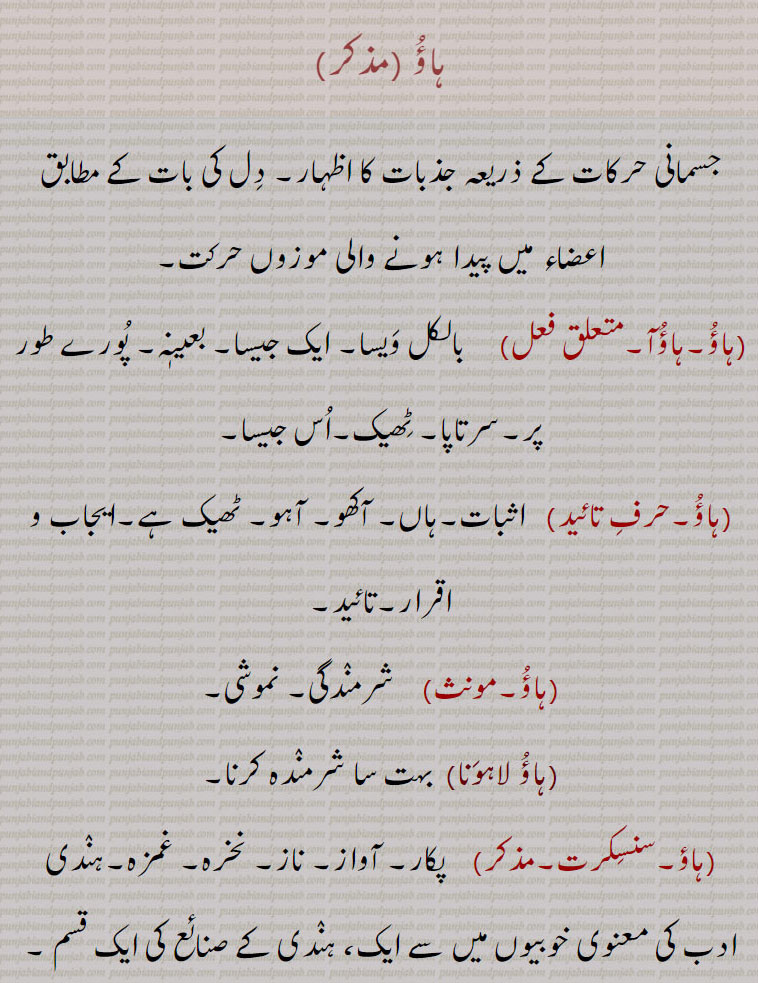 ہاؤُ (مذکر)
جسمانی حرکات کے ذریعہ جذبات کا اظہار۔ دِل کی بات کے مطابق
اعضاء میں پیدا ہونے والی موزوں حرکت۔
(ہاؤُ۔ہاؤُآ۔متعلق فعل) بالکل وَیسا۔ ایک جیسا۔ بعینہٖ۔ پُورے طور
پر۔ سرتاپا۔ ٹِھیک۔اُس جیسا۔
(ہاؤُ۔حرفِ تائید) اثبات۔ہاں۔ آکھو۔ آہو۔ ٹھیک ہے۔ایجاب و
اقرار۔تائید۔
(ہاؤُ۔مونث) شرمنْدگی۔ نموشی۔
(ہاؤُ لاہوَنا) بہت سا شرمنْدہ کرنا۔
(ہاؤ۔سنسِکرت۔مذکر) پکار۔ آواز۔ ناز۔ نخرہ۔ غمزہ۔ہنْدی
ادب کی معنوی خوبیوں میں سے ایک، ہنْدی کے صنائع کی ایک قسم ۔